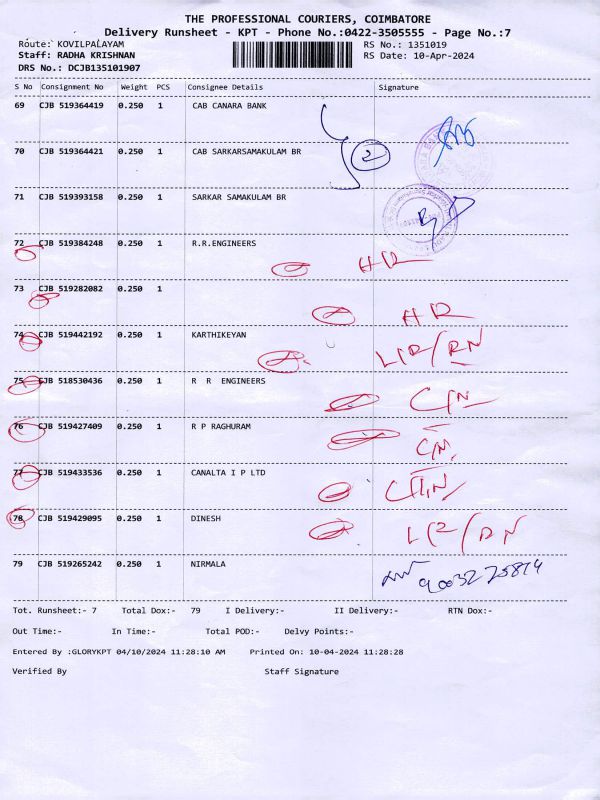 THE PROFESSIONAL COURIERS, COIMBATORE
Delivery Runsheet - KPT - Phone No.:0422-3505555 - Page No.:7
Route: KOVILPALAYAM RS No.: 1351019
Staff: RADHA KRISHNAN RS Date: 10-Apr-2024
DRS No.: DCJB135101907
S No Consignment No Weight PCS Consignee Details Signature
69 CJB 519364419 0.250 1 CAB CANARA BANK
70 CJB 519364421 0.250 1 CAB SARKARSAMAKULAM BR 2
71 CJB 519393158 0.250 1 SARKAR SAMAKULAM BR
72 CJB 519384248 0.250 1 R.R.ENGINEERS
73 CJB 519282082 0.250 1
74 CJB 519442192 0.250 1 KARTHIKEYAN
75 CJB 518530436 0.250 1 R R ENGINEERS
76 CJB 519427409 0.250 1 R P RAGHURAM
77 CJB 519433536 0.250 1 CANALTA I P LTD
78 CJB 519429095 0.250 1 DINESH
79 CJB 519265242 0.250 1 NIRMALA
Tot. Runsheet:- 7 Total Dox:- 79 I Delivery:- II Delivery:- RTN Dox:-
Out Time:- In Time:- Total POD:- Delvy Points:-
Entered By :GLORYKPT 04/10/2024 11:28:10 AM Printed On: 10-04-2024 11:28:28
Verified By Staff Signature